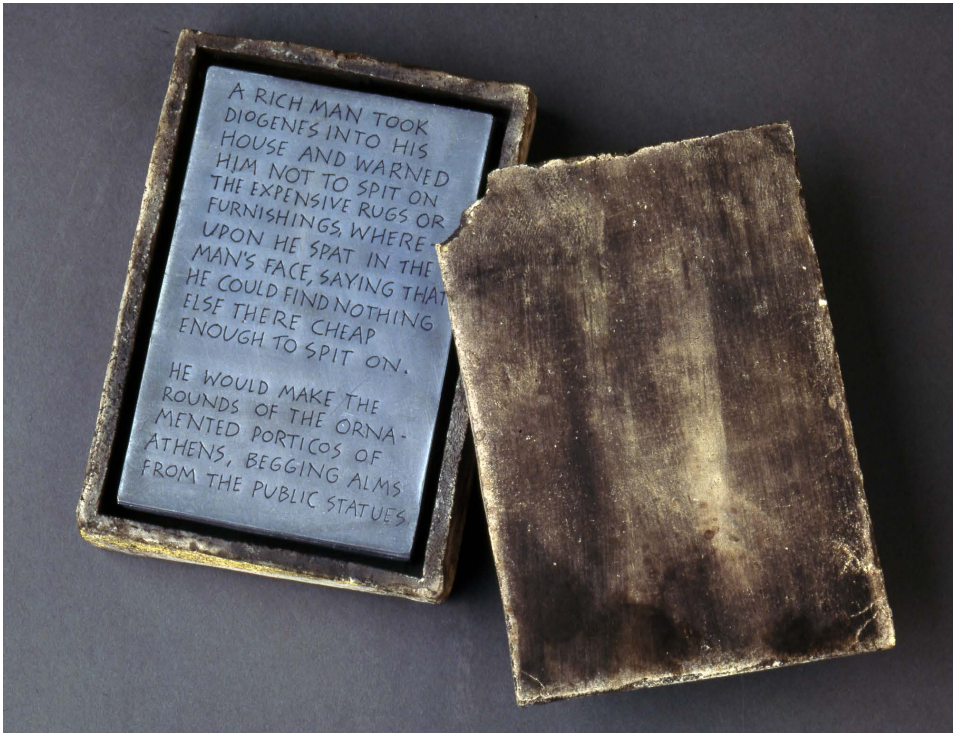 A RICH MAN TOOK
DIOGENES INTO HIS
HOUSE AND WARNED
HIM NOT TO SPIT ON
THE EXPENSIVE RUGS OR
FURNISHINGS, WHERE-
UPON HE SPAT IN THE
MAN'S FACE, SAYING THAT
HE COULD FIND NOTHING
ELSE THERE CHEAP
ENOUGH TO SPIT ON.
HE WOULD MAKE THE
ROUNDS OF THE ORNA-
MENTED PORTICOS OF
ATHENS, BEGGING ALMS
FROM THE PUBLIC STATUES